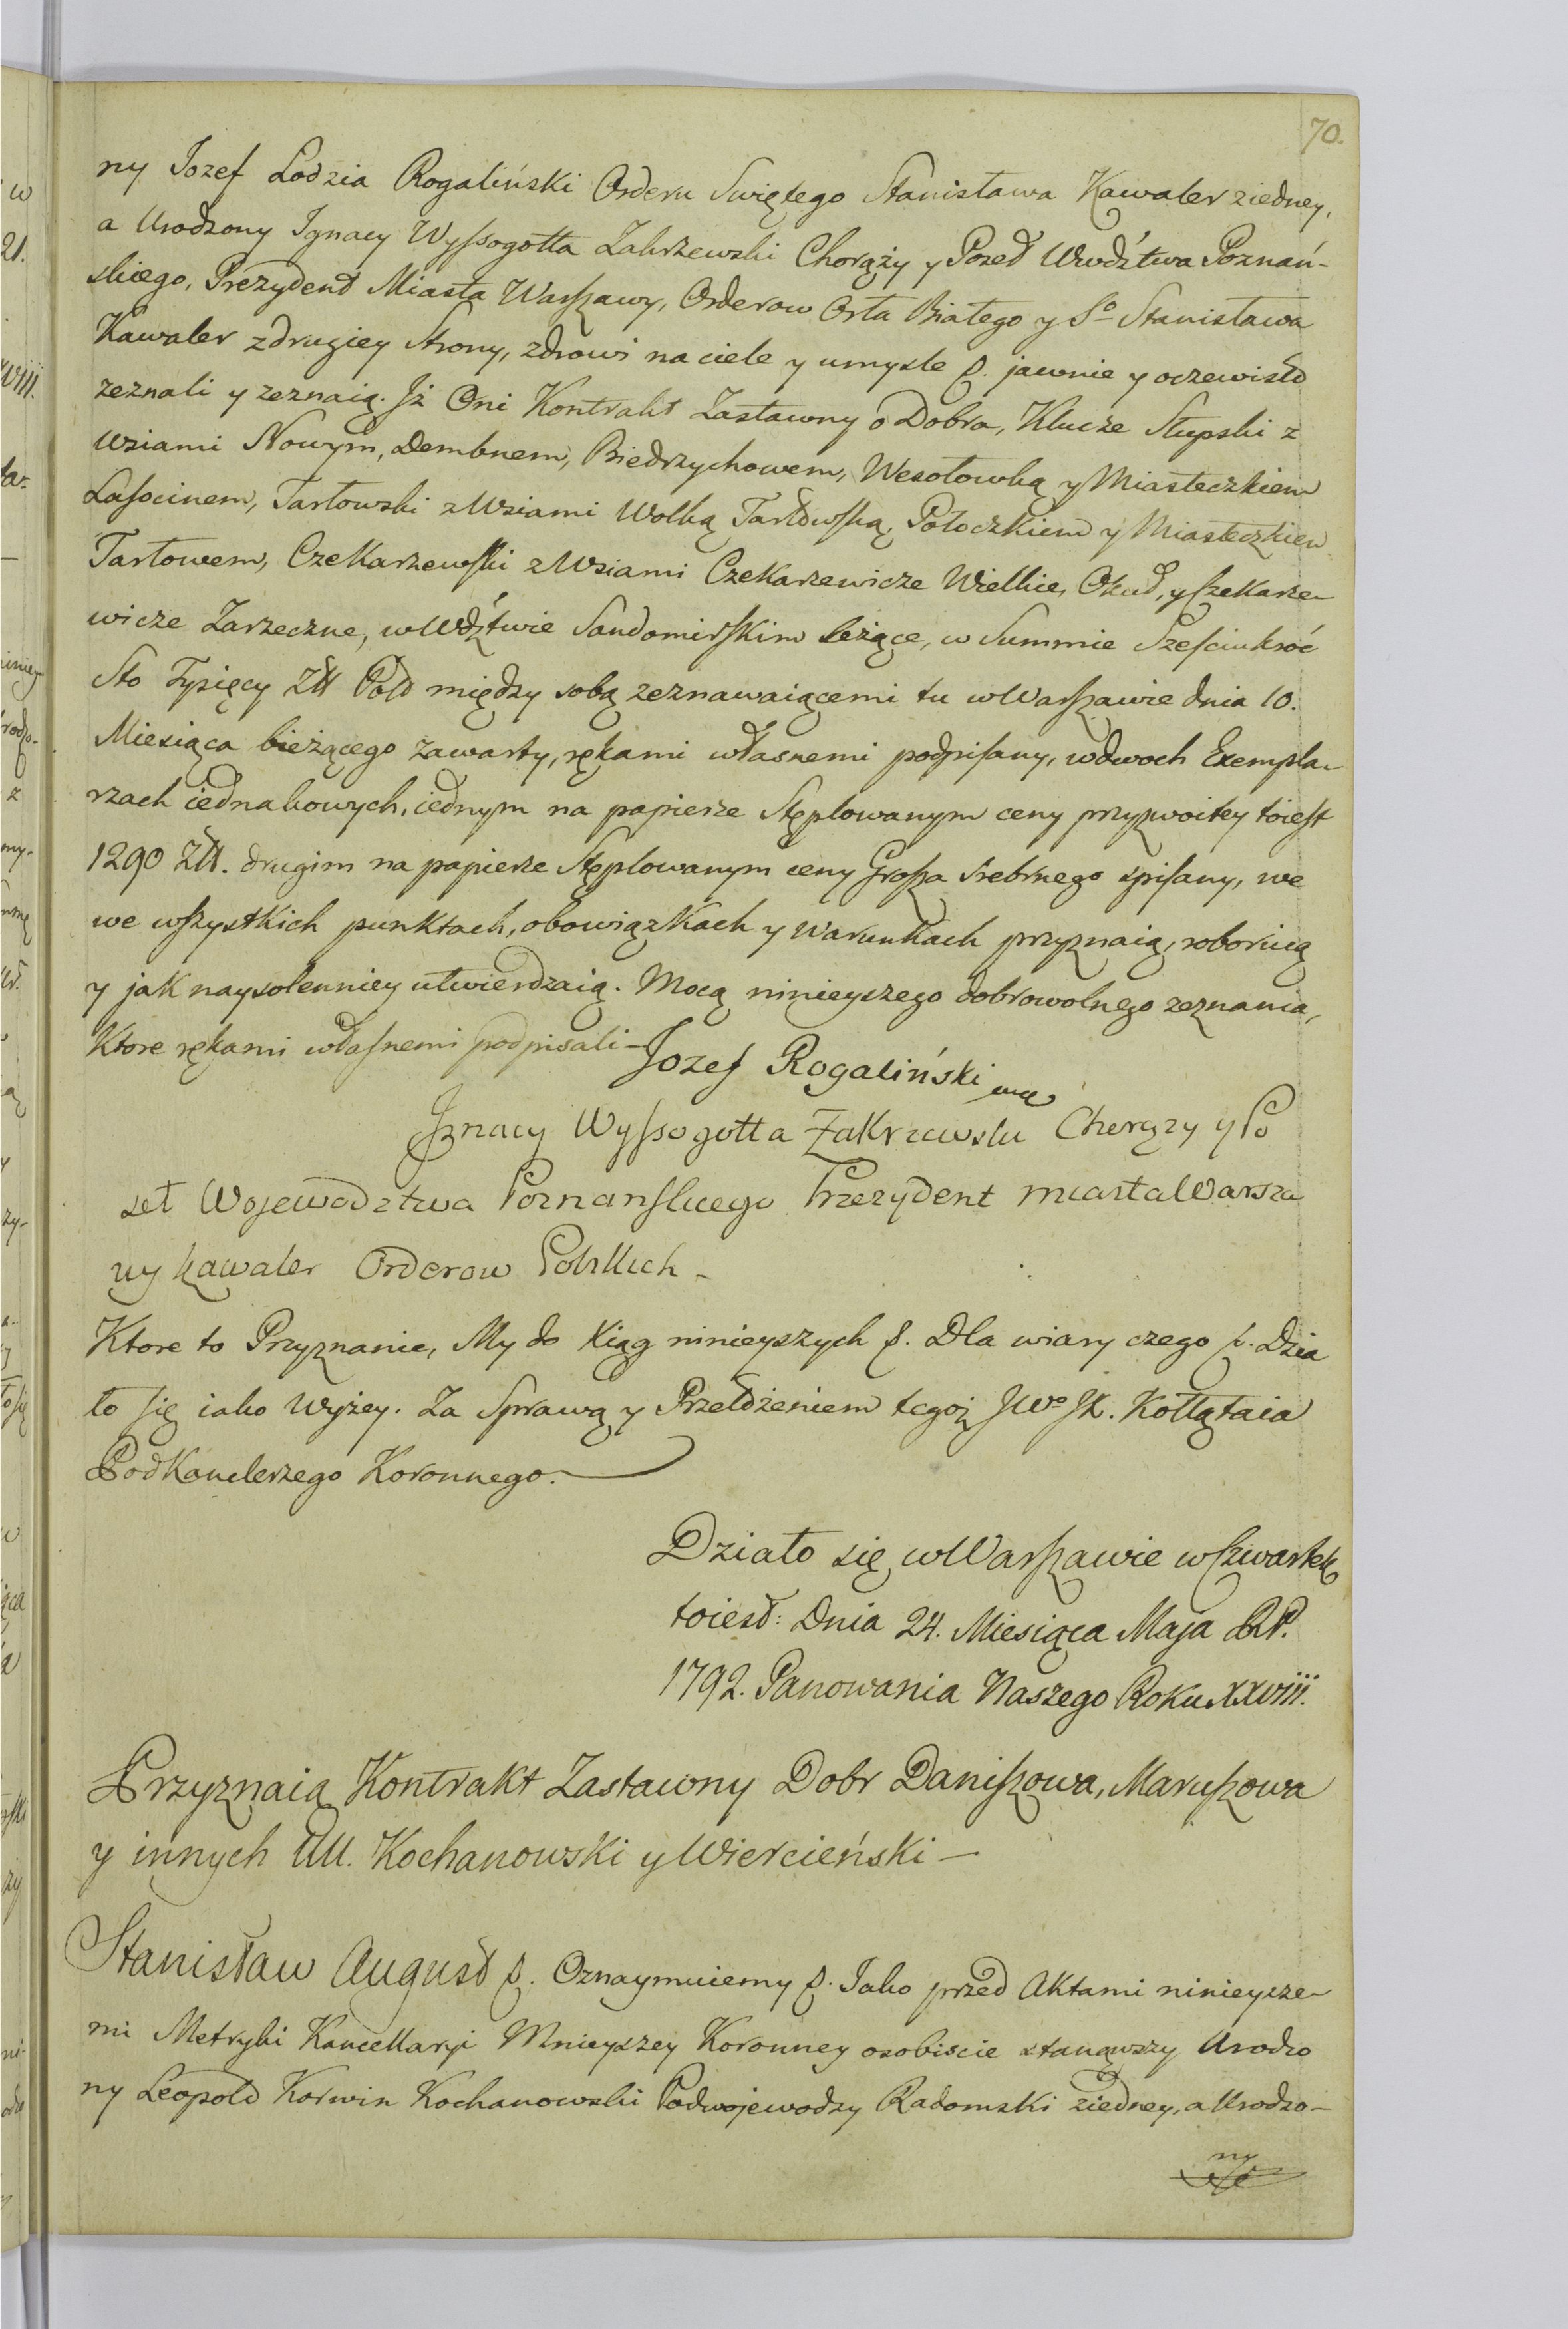 70.
ny Jozef Lodzia Rogaliński Orderu Swiętego Stanisława Kawaler ziedney,
a Urodzony Ignacy Wyssogotta Zakrzewski Chorąży y Poseł Wwdztwa Poznań-
skiego, Prezydent Miasta Warszawy, Orderow Orła Białego y Sº Stanisława
Kawaler zdrugiey strony, zdrowi na ciele y umysle &. jawnie y oczewisto
zeznali y zeznaią. Iż Oni Kontrakt Zastawny o Dobra, Klucze Słupski z
Wsiami Nowym, Dembnem, Biedrzychowem, Wesołowką y Miasteczkiem
Lasocinem, Tarłowski z Wsiami Wolką Tarłowską, Potoczkiem y Miasteczkiem
Tarłowem, Czekarzewski z Wsiami Czekarzewicze Wielkie, Okuł, y Czekarze-
wicze Zarzeczne, w Wdztwie Sandomirskim leżące, w Summie Sześciukroć
Sto Tysięcy Złł Pols między sobą zeznawaiącemi tu w Warszawie dnia 10.
Miesiąca bieżącego zawarty, rękami własnemi podpisany, w dwoch Exempla-
rzach iednakowych, iednym na papierze Stęplowanym ceny przyzwoitey toiest
1290 Złł. drugim na papierze Stęplowanym ceny Grosza srebrnego spisany, we
we wszystkich punktach, obowiązkach y warunkach przyznaią, roboruią
y jak naysolenniey utwierdzaią. Mocą ninieyszego dobrowolnego zeznania,
Ktore rękami własnemi podpisali — Jozef Rogaliński mp
Ignacy Wyssogotta Zakrzewski Chorązy y Po
seł Wojewodztwa Poznanskiego Prezydent miasta Warsza
wy kawaler Orderow Polskich —
Ktore to Przyznanie, My do Xiąg ninieyszych &. Dla wiary czego &. Dzia
ło się iako Wyżey. Za Sprawą y Przełożeniem tegoż JWº JX. Kołłątaia
Podkanclerzego Koronnego.
Działo się w Warszawie w Czwartek
toiest: Dnia 24. Miesiąca Maja RP.
1792. Panowania Naszego Roku XXVIII.
Przyznaią Kontrakt Zastawny Dobr Daniszowa, Maruszowa
y innych UU. Kochanowski y Wiercieński —
Stanisław August &. Oznaymuiemy &. Iako przed Aktami ninieysze-
mi Metryki Kancellaryi Mnieyszey Koronney osobiscie stanąwszy Urodzo
ny Leopold Korwin Kochanowski Podwojewodzy Radomski ziedney, a Urodzo-
ny